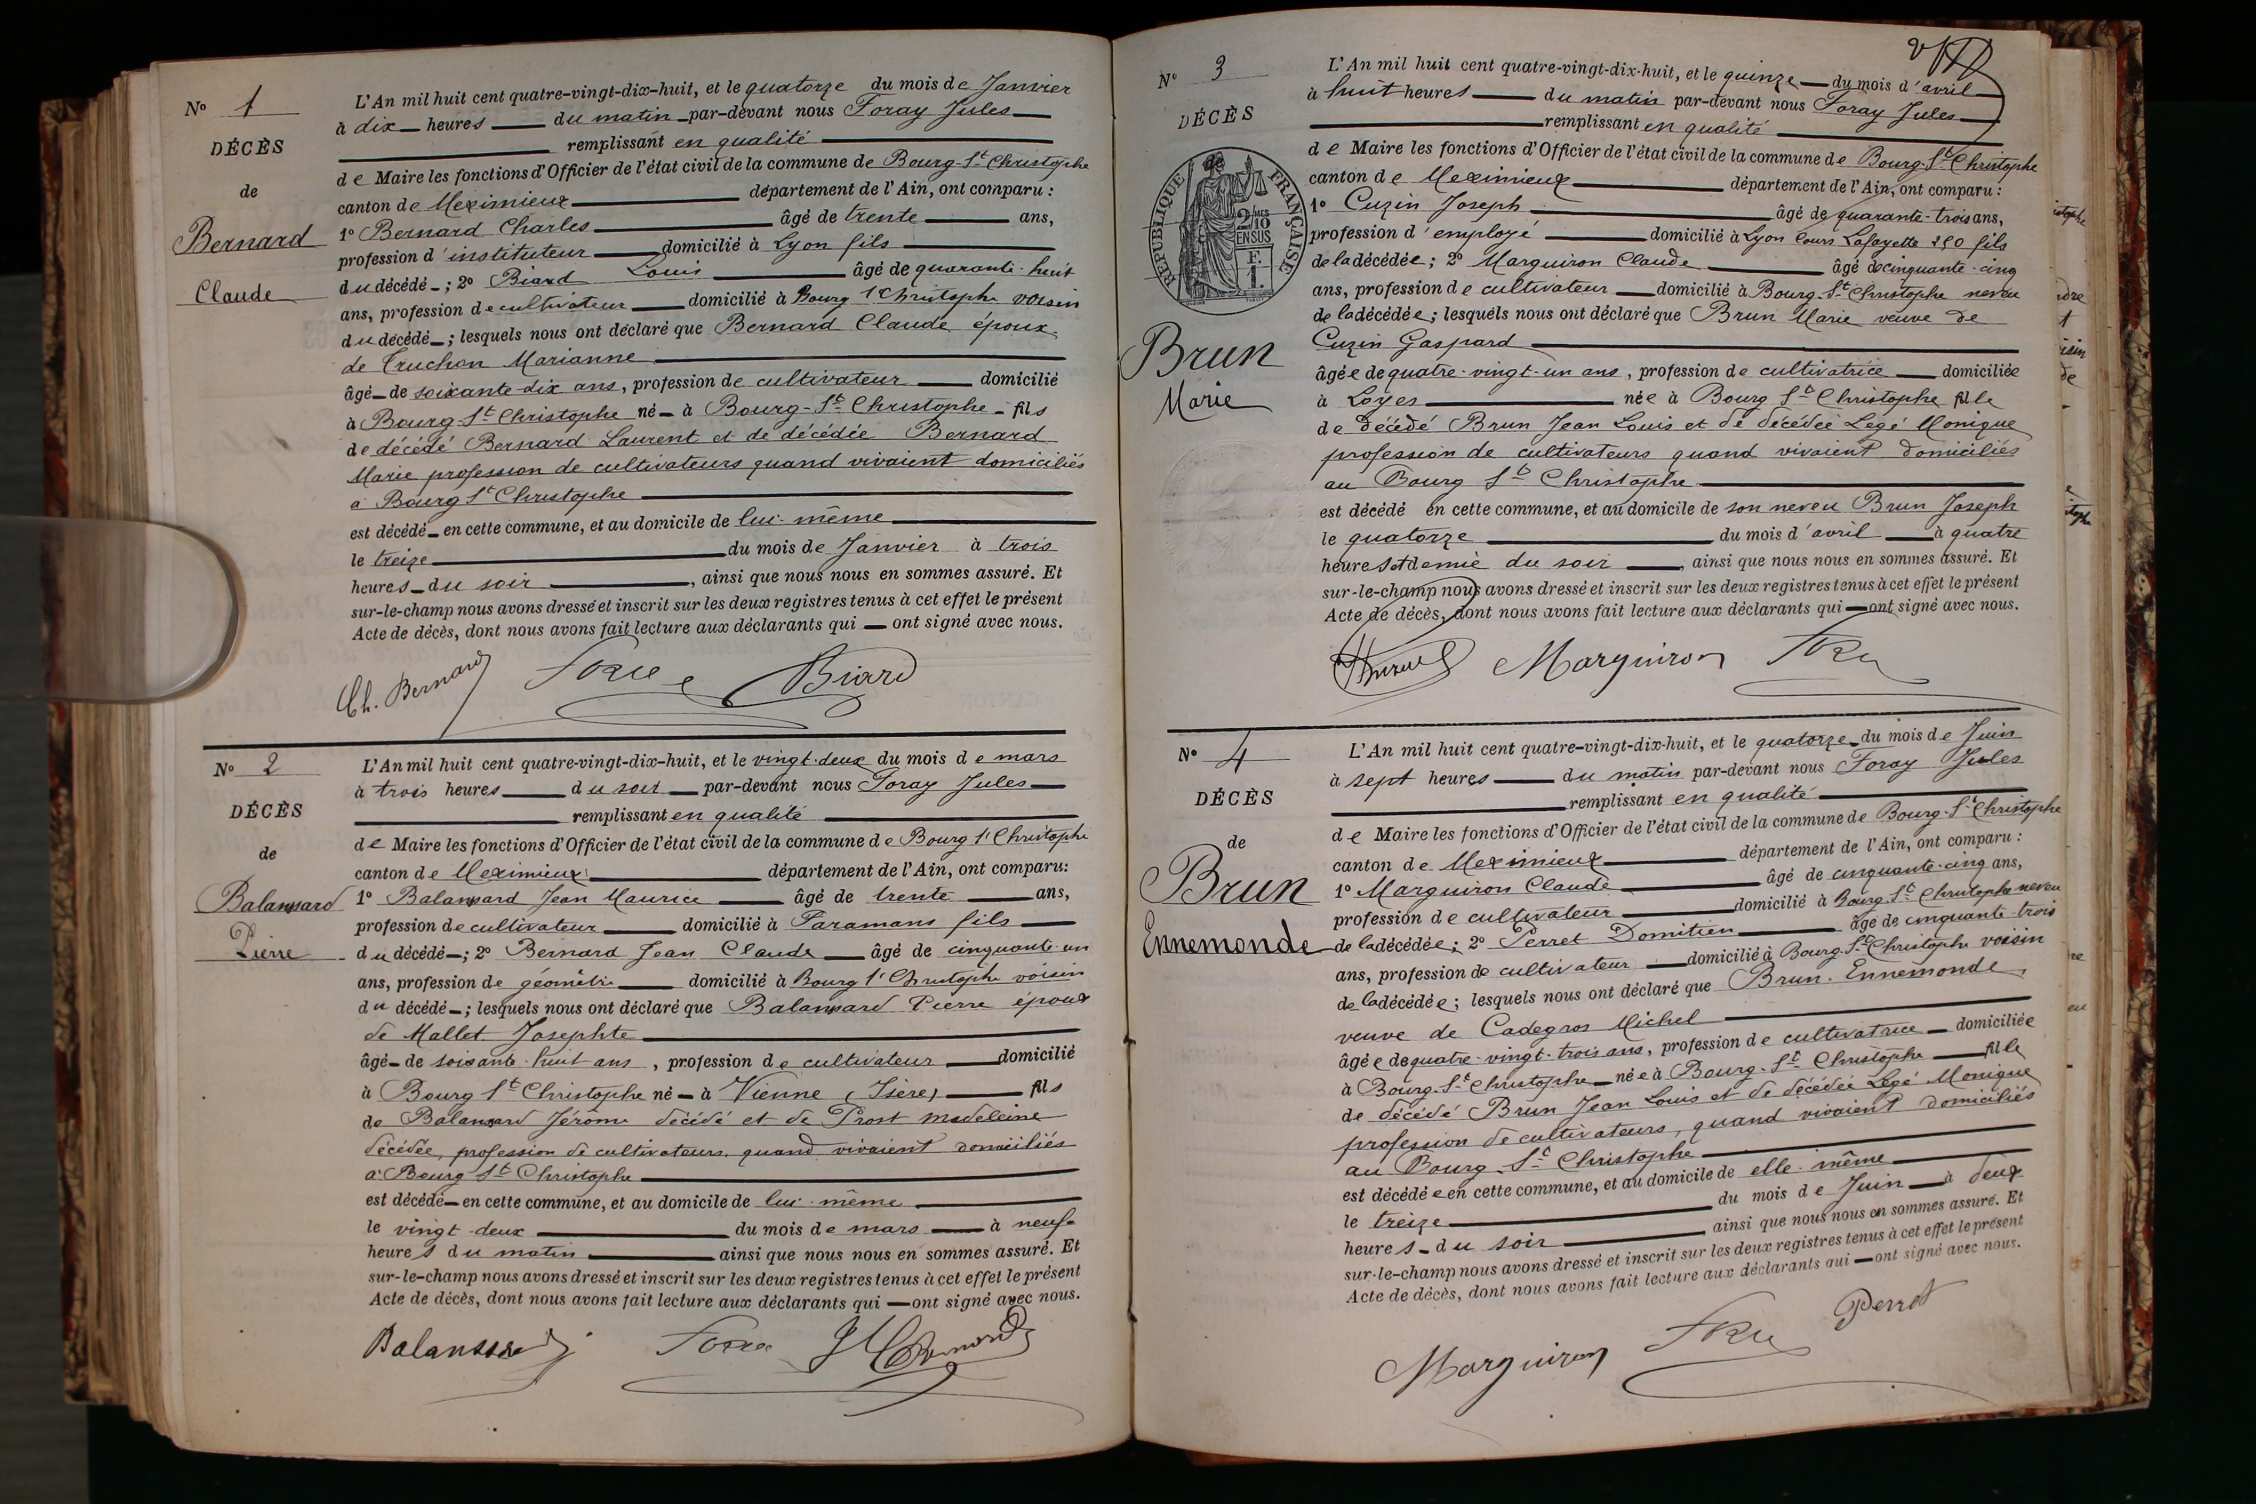 N° 1
DÉCÈS
de
Bernard
Claude
L'An mil huit cent quatre-vingt-dix-huit, et le quatorze du mois de Janvier
à dix heures du matin par-devant nous Foray Jules
remplissant en qualité
de Maire les fonctions d'Officier de l'état civil de la commune de Bourg-St Christophe
canton de Meximieux département de l'Ain, ont comparu :
1° Bernard Charles âgé de trente ans,
profession d'instituteur domicilié à Lyon fils
du décédé ; 2° Biard Louis âgé de quarante-huit
ans, profession de cultivateur domicilié à Bourg St Christophe voisin
du décédé ; lesquels nous ont déclaré que Bernard Claude époux
de Truchon Marianne
âgé de soixante-dix ans, profession de cultivateur domicilié
à Bourg-St Christophe né à Bourg-St Christophe fils
de décédé Bernard Laurent et de décédée Bernard
Marie profession de cultivateurs quand vivaient domiciliés
à Bourg St Christophe
est décédé en cette commune, et au domicile de lui-même
le treize du mois de Janvier à trois
heures du soir, ainsi que nous nous en sommes assuré. Et
sur-le-champ nous avons dressé et inscrit sur les deux registres tenus à cet effet le présent
Acte de décès, dont nous avons fait lecture aux déclarants qui ont signé avec nous.
Ch. Bernard Biard
N° 2
DÉCÈS
de
Balansard
Pierre
L'An mil huit cent quatre-vingt-dix-huit, et le vingt-deux du mois de mars
à trois heures du soir par-devant nous Foray Jules
remplissant en qualité
de Maire les fonctions d'Officier de l'état civil de la commune de Bourg St Christophe
canton de Meximieux département de l'Ain, ont comparu :
1° Balansard Jean Maurice âgé de trente ans,
profession de cultivateur domicilié à Faramans fils
du décédé ; 2° Bernard Jean Claude âgé de cinquante-un
ans, profession de géomètre domicilié à Bourg St Christophe voisin
du décédé ; lesquels nous ont déclaré que Balansard Pierre époux
de Mallet Josephte
âgé de soixante-huit ans, profession de cultivateur domicilié
à Bourg St Christophe né à Vienne (Isère) fils
de Balansard Jérôme décédé et de Prost Madeleine
décédée, profession de cultivateurs, quand vivaient domiciliés
à Bourg St Christophe
est décédé en cette commune, et au domicile de lui-même
le vingt-deux du mois de mars à neuf
heures du matin ainsi que nous nous en sommes assuré. Et
sur-le-champ nous avons dressé et inscrit sur les deux registres tenus à cet effet le présent
Acte de décès, dont nous avons fait lecture aux déclarants qui ont signé avec nous.
Balansard Bernard
N° 3
DÉCÈS
RÉPUBLIQUE FRANÇAISE
2/10
EN SUS
F.
1.
Brun
Marie
L'An mil huit cent quatre-vingt-dix-huit, et le quinze du mois d'avril
à huit heures du matin par-devant nous Foray Jules
remplissant en qualité
de Maire les fonctions d'Officier de l'état civil de la commune de Bourg-St Christophe
canton de Meximieux département de l'Ain, ont comparu :
1° Cuzin Joseph âgé de quarante-trois ans,
profession d'employé domicilié à Lyon cours Lafayette 250 fils
de la décédée ; 2° Marguiron Claude âgé de cinquante-cinq
ans, profession de cultivateur domicilié à Bourg-St Christophe neveu
de la décédée ; lesquels nous ont déclaré que Brun Marie veuve de
Cuzin Gaspard
âgée de quatre-vingt-un ans, profession de cultivatrice domiciliée
à Loyes née à Bourg St Christophe fille
de décédé Brun Jean Louis et de décédée Légé Monique
profession de cultivateurs quand vivaient domiciliés
au Bourg St Christophe
est décédé en cette commune, et au domicile de son neveu Brun Joseph
le quatorze du mois d'avril à quatre
heures et demie du soir, ainsi que nous nous en sommes assuré. Et
sur-le-champ nous avons dressé et inscrit sur les deux registres tenus à cet effet le présent
Acte de décès, dont nous avons fait lecture aux déclarants qui ont signé avec nous.
Marguiron
N° 4
DÉCÈS
de
Brun
Ennemonde
L'An mil huit cent quatre-vingt-dix-huit, et le quatorze du mois de Juin
à sept heures du matin par-devant nous Foray Jules
remplissant en qualité
de Maire les fonctions d'Officier de l'état civil de la commune de Bourg-St Christophe
canton de Meximieux département de l'Ain, ont comparu :
1° Marguiron Claude âgé de cinquante-cinq ans,
profession de cultivateur domicilié à Bourg-St Christophe neveu
de la décédée ; 2° Perret Domitien âgé de cinquante-trois
ans, profession de cultivateur domicilié à Bourg-St Christophe voisin
de la décédée ; lesquels nous ont déclaré que Brun Ennemonde
veuve de Cadegros Michel
âgée de quatre-vingt-trois ans, profession de cultivatrice domiciliée
à Bourg-St Christophe née à Bourg-St Christophe fille
de décédé Brun Jean Louis et de décédée Légé Monique
profession de cultivateurs, quand vivaient domiciliés
au Bourg-St Christophe
est décédée en cette commune, et au domicile de elle-même
le treize du mois de Juin à deux
heures du soir ainsi que nous nous en sommes assuré. Et
sur-le-champ nous avons dressé et inscrit sur les deux registres tenus à cet effet le présent
Acte de décès, dont nous avons fait lecture aux déclarants qui ont signé avec nous.
Marguiron Perret